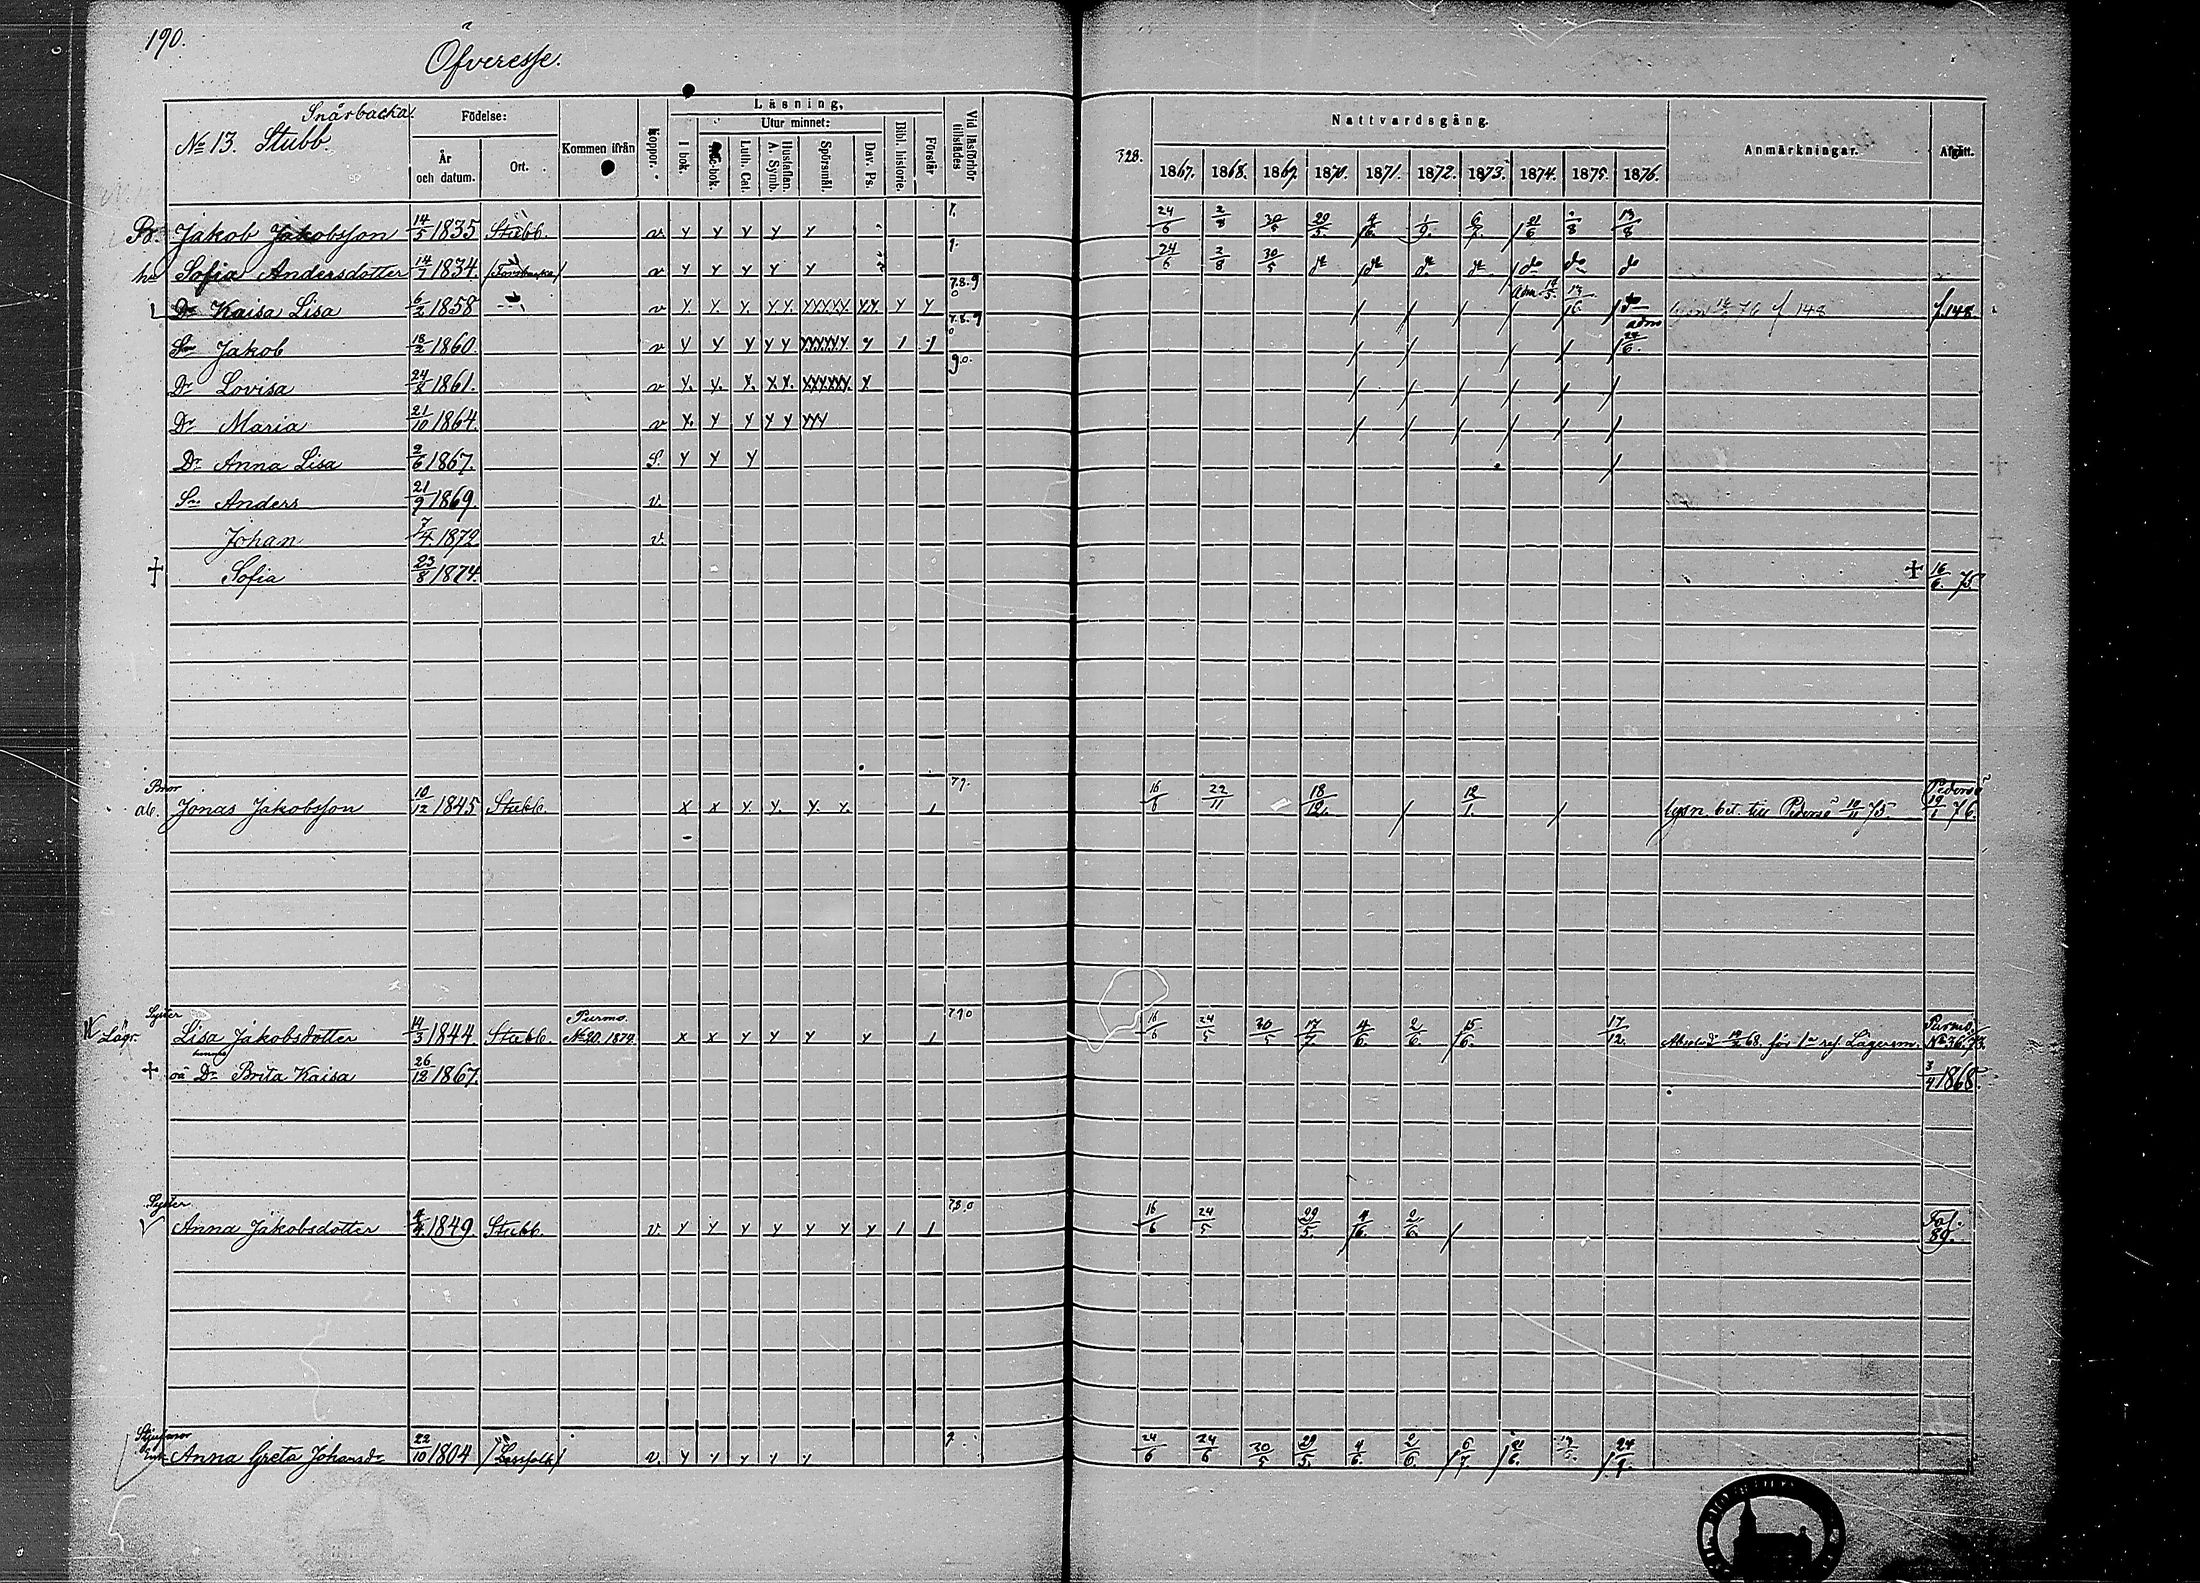 190.
Öfveresse.
Snårbacka.
No 13. Stubb.
Födelse:
År och datum.
Ort.
Kommen ifrån
Koppor.
Läsning,
I bok.
Utur minnet:
Luth. Cat.
Hustaflan. A. Symb.
Spörsmål.
Dav. Ps.
Bibl. historie.
Förstår
Vid läsförhör tillstädes
328.
Nattvardsgång.
1867. 1868. 1869. 1870. 1871. 1872. 1873. 1874. 1875. 1876.
Anmärkningar.
Afgått.
Bd. Jakob Jakobsson 14/5 1835 Stubb. v y y y y y 7. 24/6 2/8 30/5 29/5. 4/6. 1/9. 6/7. 21/6 13/8
hu Sofia Andersdotter 14/7 1834. v y y y y y 24/6 2/8 30/5 do do do do do do do
Dr Kaisa Lisa 6/2 1858 v y. y. y. y.y. yyyyy. y.y. y y 7.8.9 0 f. 148
Sn Jakob 18/2 1860. v y y y y y yyyyy y 1 1 7.8.9 0 adm 24/6.
Dr Lovisa 24/8 1861. v y. y. y. x x. xxxxxx. x 9.0.
Dr Maria 21/10 1864. v x. y y y y yyy
Dr Anna Lisa 2/6 1867. S. y y y
Sn Anders 21/9 1869. v.
Johan 7/4 1872 v.
† Sofia 23/8 1874. † 16/6. 75
Bror
Jonas Jakobsson 10/12 1845 Stubb. x x y. y. y. y. 1 79. 16/6 22/11 18/12. 12/1. lysn. bet. till Pedersö 75. Pedersö 19/1 76.
Syster
Lägr. Lisa Jakobsdotter 14/3 1844 Stubb. Purmo. No 20. 1874. x x y y y y 1 790 16/6 24/5 30/5 17/7 4/6. 2/6. 15/6. 17/12. 68. för 1a Lägersm. Purmo No 36. 73.
† oä Dr Brita Kaisa 26/12 1867. 3/4 1868
Syster
Anna Jakobsdotter 4/4. 1849. Stubb. v. y y y y y y y 1 1 78.0 16/6 24/5 29/5. 4/6. 2/6. Fol. 89.
Styfmor
Enk. Anna Greta Johansdr 22/10 1804 v. y y y y y 7 24/6 24/6 30/5 29/5. 4/6. 2/6. 6/7. 21/6. 24/9.